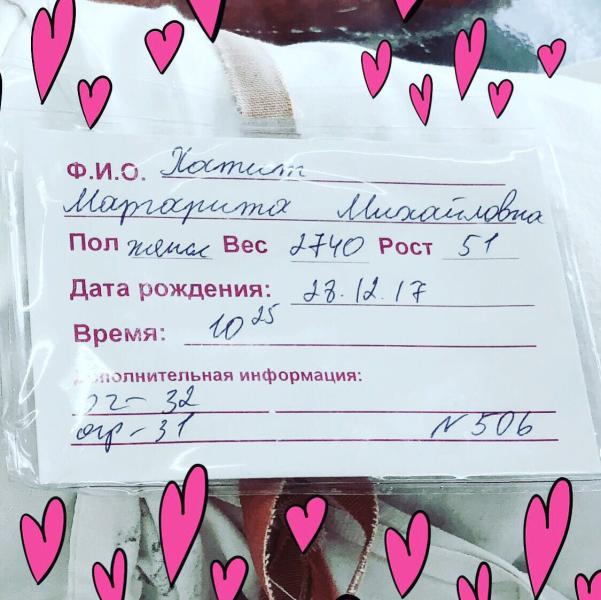 Ф.И.О. Хатит
Маргарита Михайловна
Пол женск Вес 2740 Рост 51
Дата рождения: 28.12.17
Время: 10 25
Дополнительная информация:
ог- 32
огр- 31 N 506